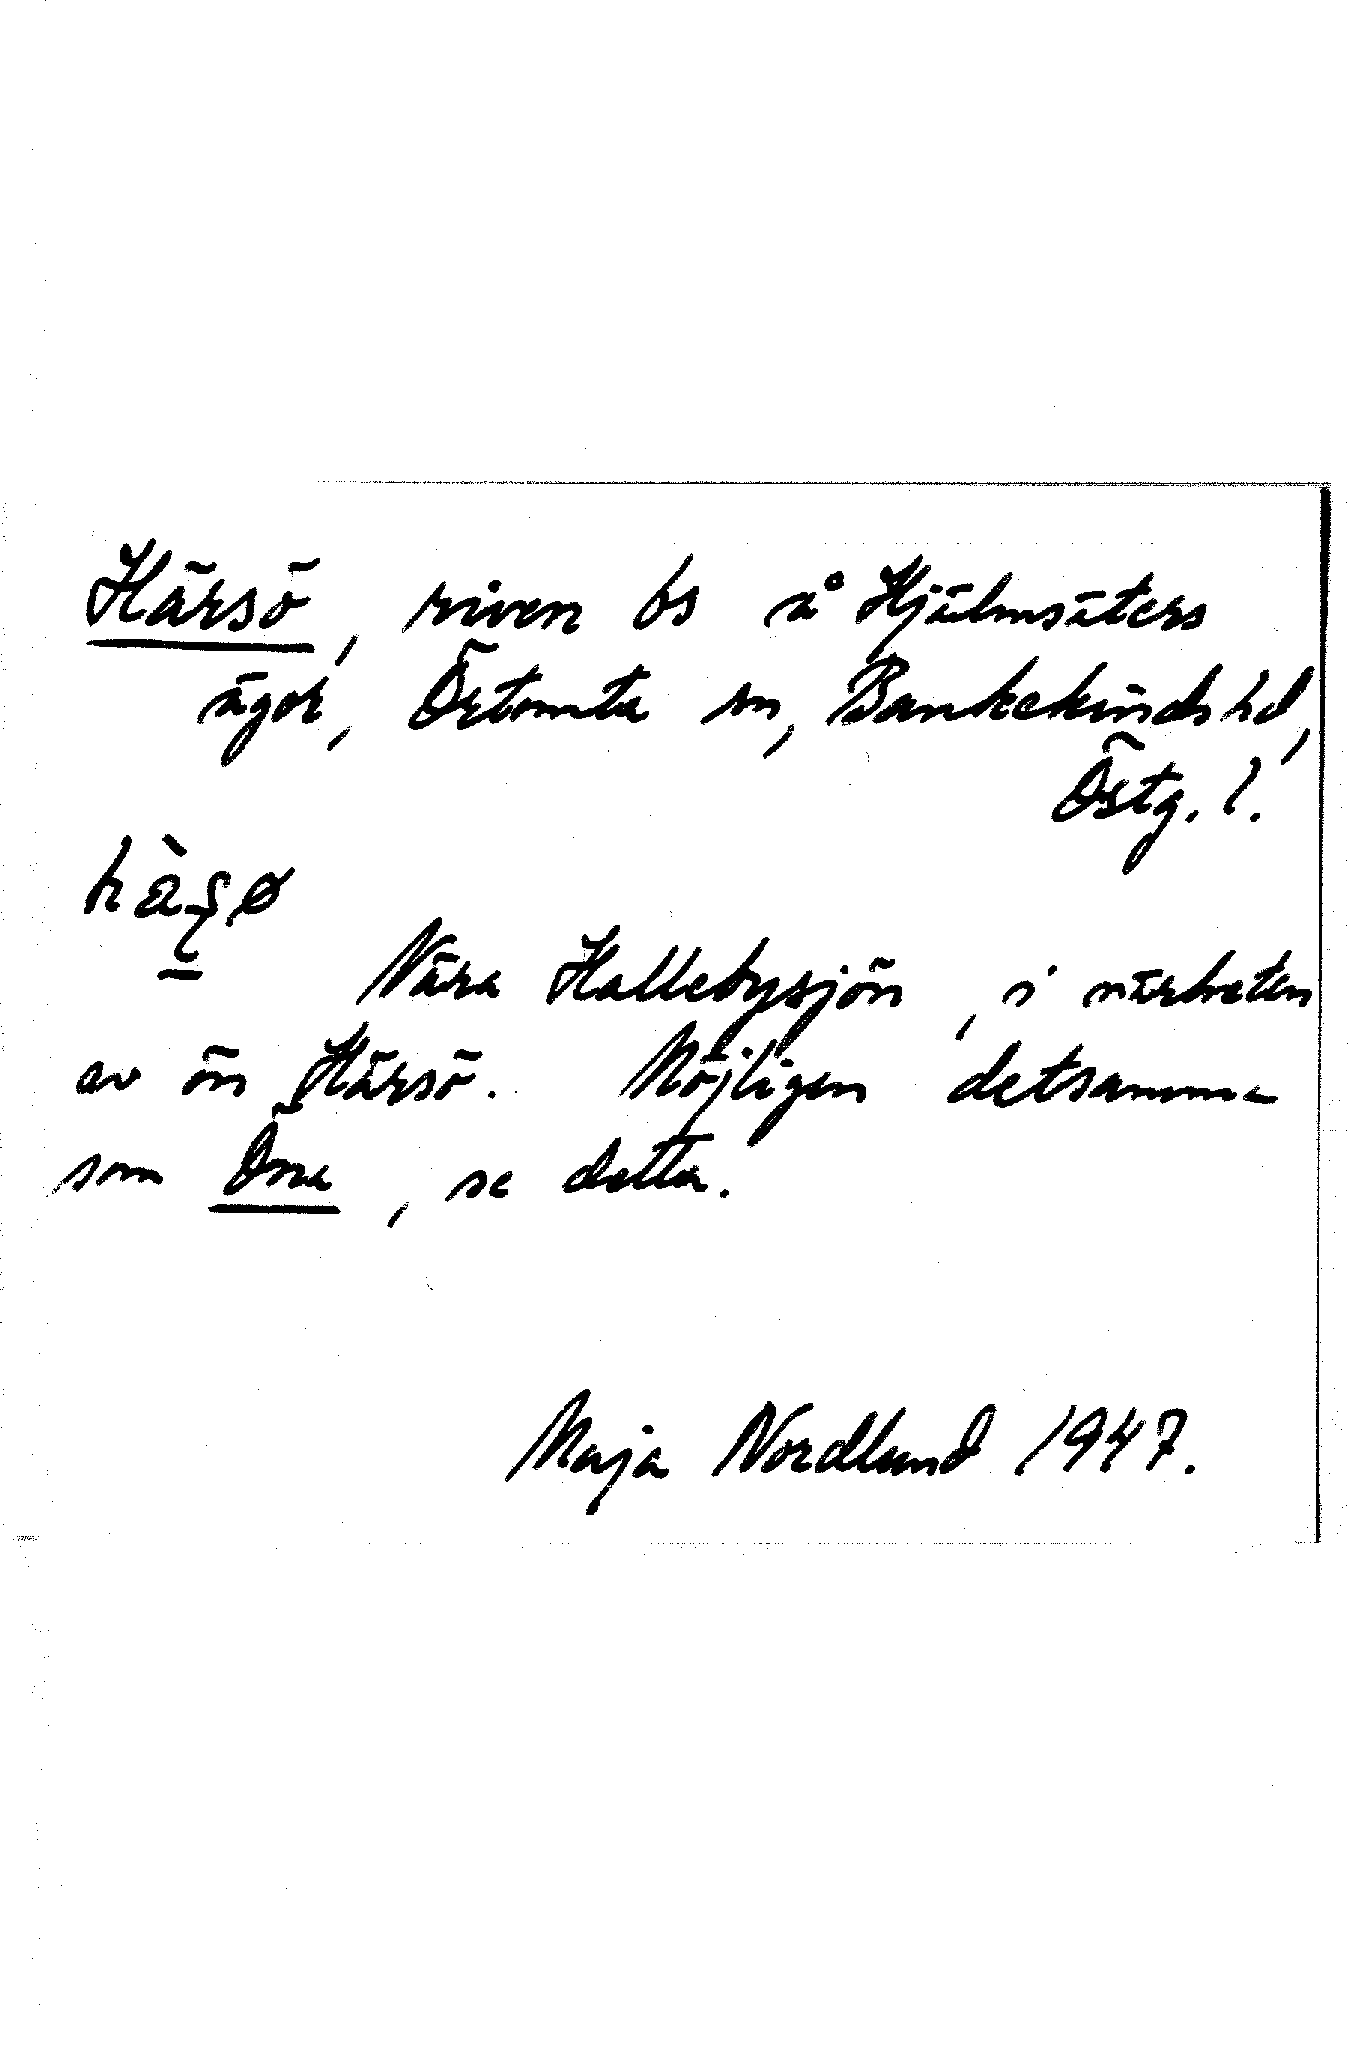 Härsö, riven bs å Hjälmsäters
ägor, Örtomta sn, Bankekinds hd,
Östg. l.
hä̀ʂø
Nära Hallebysjön, i närheten
av ön Härsö. Möjligen detsamma
som Öna, se detta.
Maja Nordlund 1947.